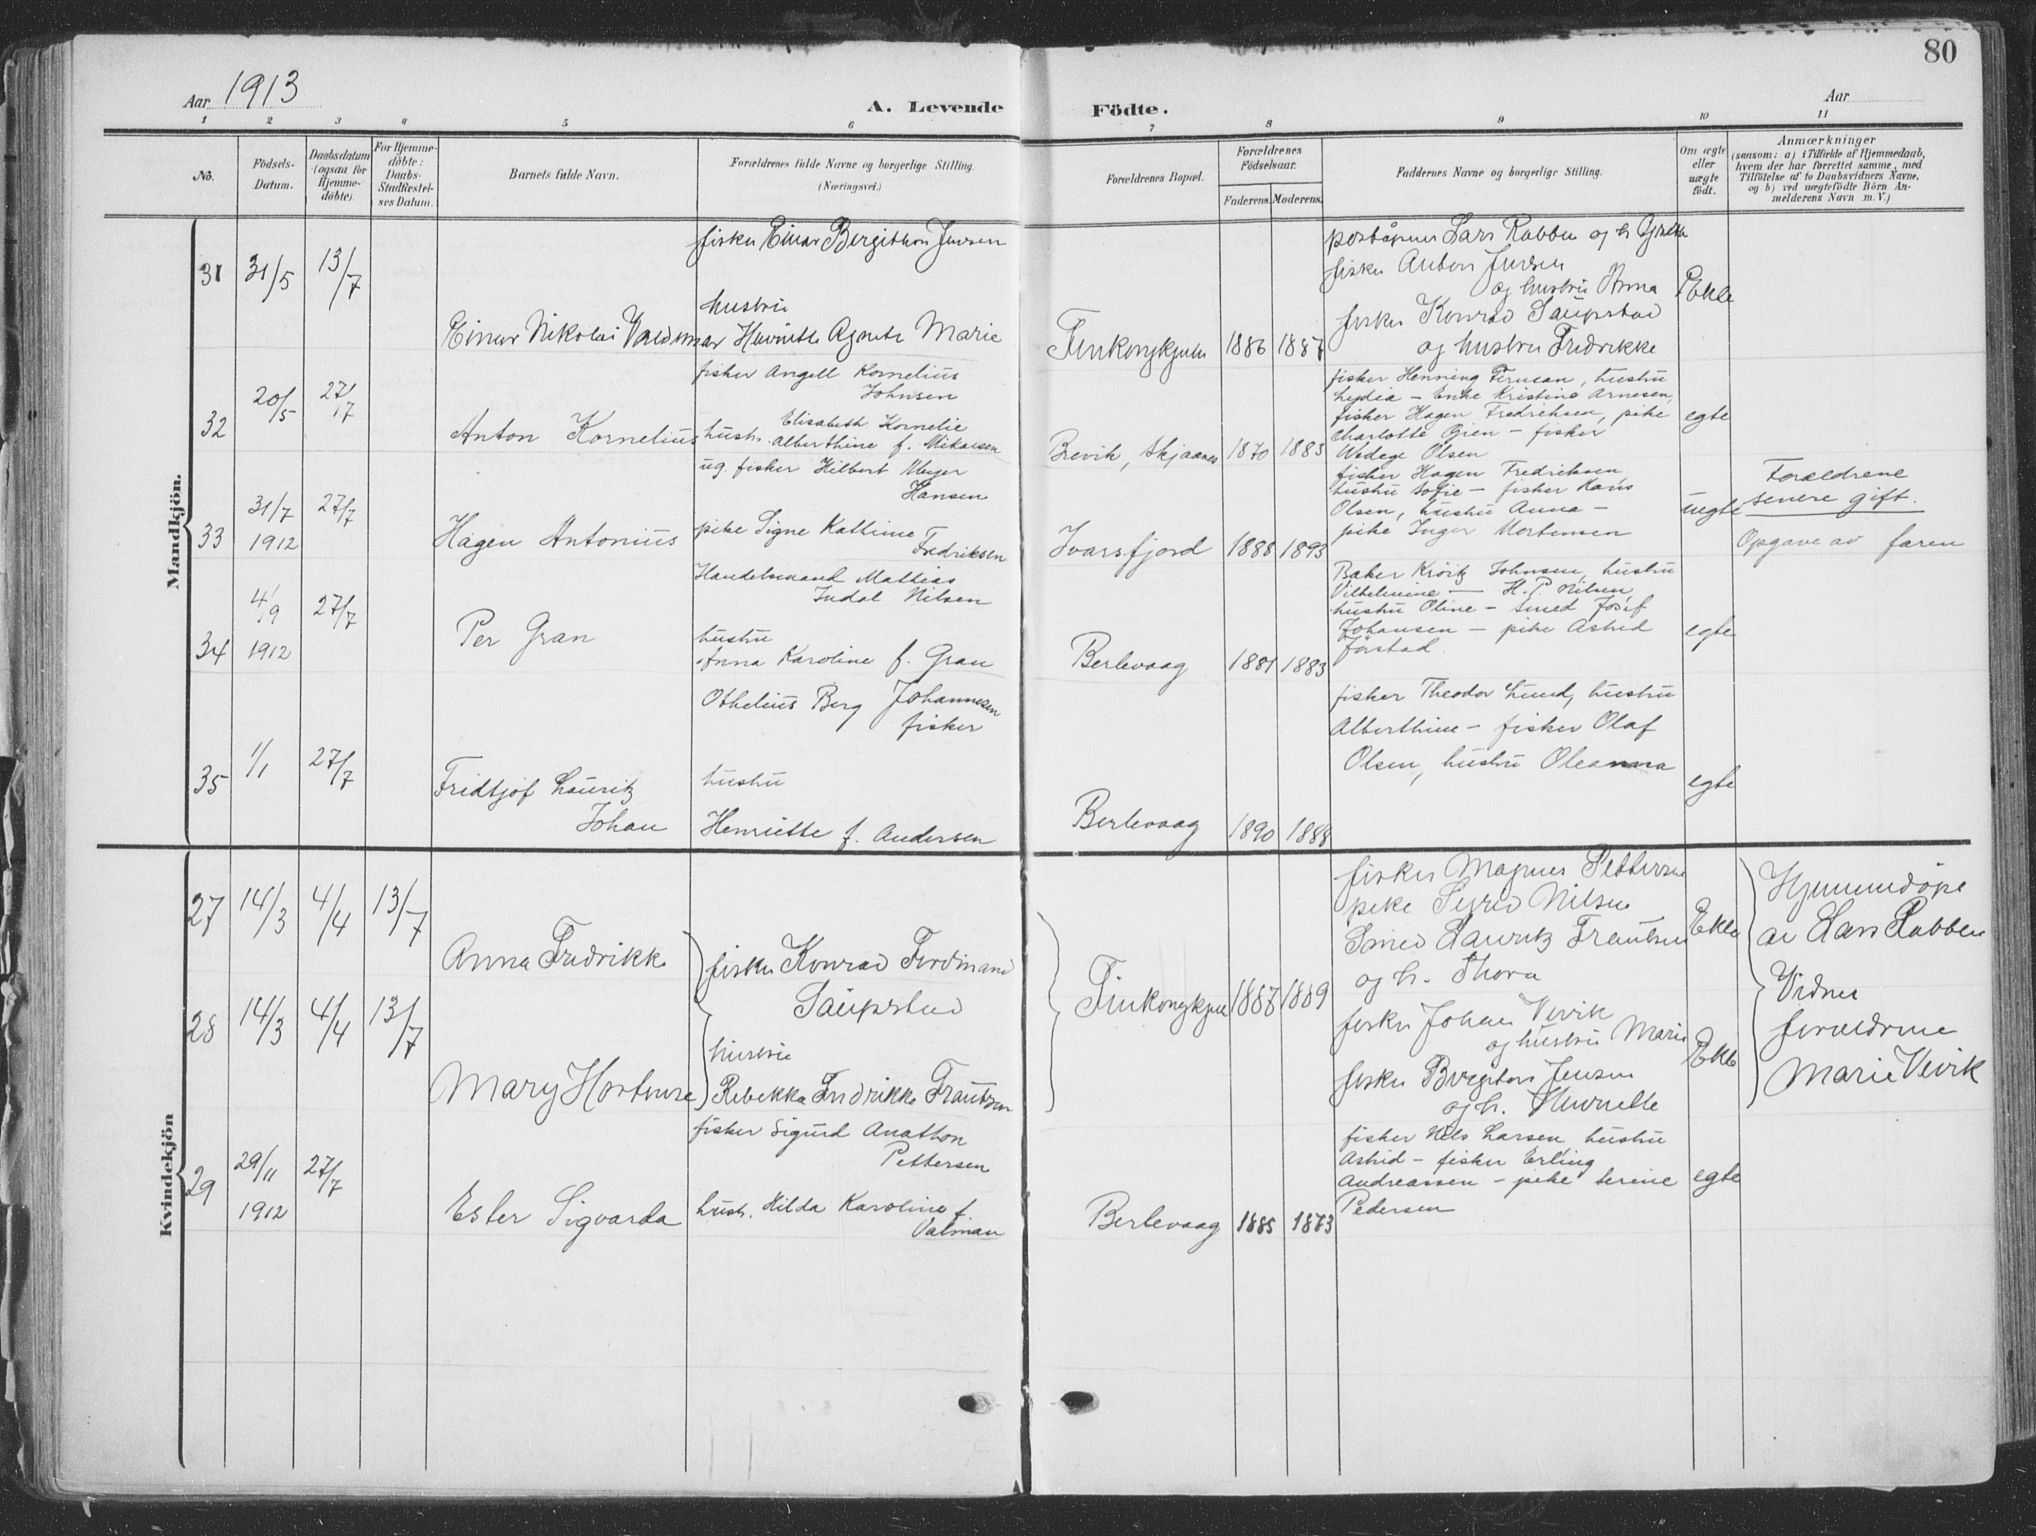 80
Aar 1913
A. Levende Födte.
Aar
1 2 3 4 5 6 7 8 9 10 11
No.
Födsels-
Datum.
Daabsdatum
(ogsaa for
Hjemme-
döbte).
For Hjemme-
döbte:
Daabs-
Stadfæstel-
ses Datum.
Barnets fulde Navn.
Forældrenes fulde Navne og borgerlige Stilling.
(Næringsvei.)
Forældrenes Bopæl.
Forældrenes
Födselsaar.
Faderens. Moderens.
Faddernes Navne og borgerlige Stilling.
Om ægte
eller
uægte
födt.
Anmærkninger
(saasom: a) i Tilfælde af Hjemmedaab,
hvem der har forrettet samme, med
Tilföielse af to Daabsvidners Navne,
og b) ved uægtefödte Börn An-
melderens Navn m. V.)
Mandkjön.
31
31/5
13/7
Einar Nikolai Valdemar
fisker Einar Bergithon Jensen
hustru
Henriette Agnete Marie
Finkongkjeilen
1886 1887
poståpner Lars Robbe og h. Grete
fisker Anton Jensen
og hustru Anna
fisker Konrad Saupstad
og hustru Fredrikke
Ekte
32
20/5
27/7
Anton Kornelius
fisker Angell Kornelius
Johnsen
hustr. Elisabeth Kornelie
Alberthine f. Mikalsen
Brevik, Skjaanes
1870 1883
fisker Henning Ferman, hustru
Lydia – Enke Kristine Arnesen,
fisker Hagen Fredriksen, pike
Charlotte Gjen – fisker
Wedege Olsen
egte
33
31/7
1912
27/7
Hagen Antonius
ug. fisker Hilbert Meyer
Hansen
pike Signe Kathrine
Fredriksen
Ivarsfjord
1888 1893
fisker Hagen Fredriksen
hustru Sofie – fisker Hans
Olsen, hustru Anna –
pike Inger Mortensen
uegte
Forældrene
senere gift.
Opgave av faren
34
4/9
1912
27/7
Per Gran
Handelsmand Mathias
Indal Nilsen
hustru
Anna Karoline f. Gran
Berlevaag
1881 1883
Baker Kröitz Johnsen, hustru
Vilhelmine – H. P. Nilsen,
hustru Oline – Smed Josef
Johansen – pike Astrid
Jörstad.
egte
35
1/1
27/7
Fridtjof Lauritz
Johan
Othelius Berg Johannesen
fisker
hustru
Henriette f. Andersen
Berlevaag
1890 1888
fisker Theodor Lund, hustru
Alberthine – fisker Olaf
Olsen, hustru Oleanna
egte
Kvindekjön
27
14/3
4/4
13/7
Anna Fredrikke
fisker Konrad Ferdinand
Saupstad
hustru
Rebekka Fredrikke Frantzen
Finkongkjeil
1887 1889
fisker Magnus Pettersen
pike Sigrid Nilsen
Smed Lauritz Frantsen
og h. Thora
Ekte
Hjemmedøpt
av Lars Robben
Vidner
forældrene
Marie Vevik
28
14/3
4/4
13/7
Mary Hortense
fisker Johan Vevik
og hustru Marie
fisker Bergiton Jensen
og h. Henriette
Ekte
29
29/11
1912
27/7
Ester Sigvarda
fisker Sigurd Anathon
Pettersen
hustr. Hilda Karoline f.
Valman
Berlevaag
1885 1873
fisker Nils Larsen, hustru
Astrid – fisker Erling
Andreassen – pike Serine
Pedersen
egte